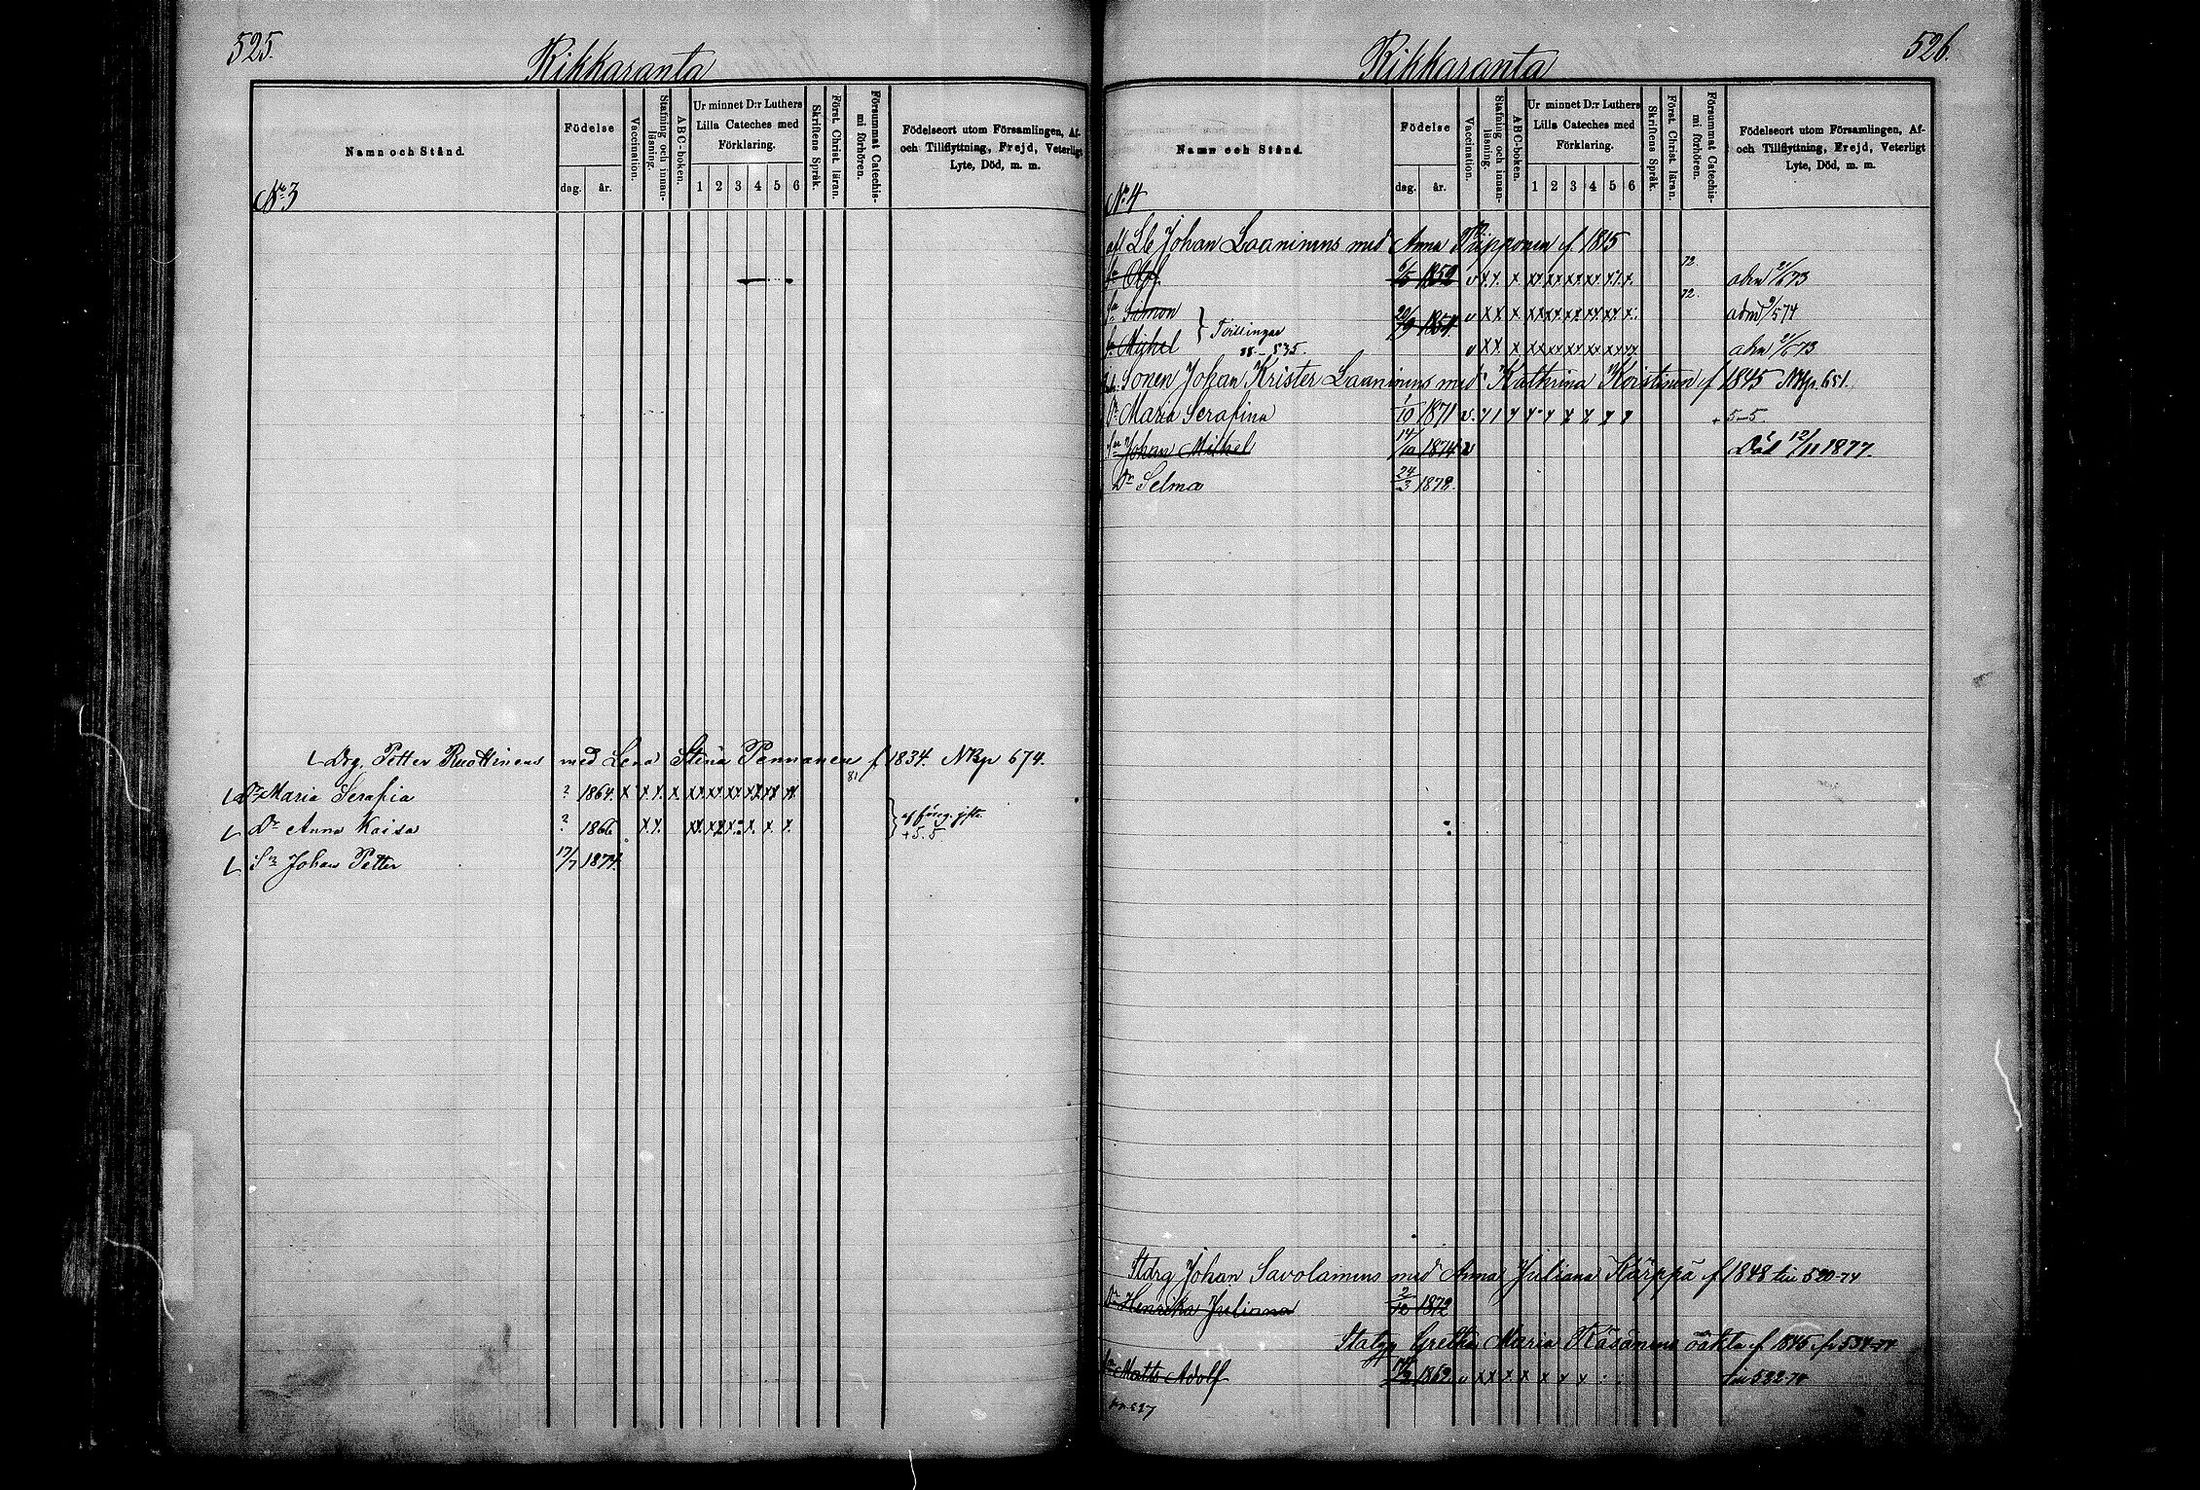 525.
Rikkaranta
Namn och Stånd
Födelse
dag. år.
Vaccination.
Stafning och innan-läsning.
ABC-boken.
Ur minnet D:r Luthers Lilla Cateches med Förklaring.
1 2 3 4 5 6
Skriftens Språk.
Först. Christ läran.
Försummat Catechis-mi förhören.
Födelseort utom Församlingen, Af- och Tillflyttning, Frejd, Veterligt Lyte, Död, m. m.
No 3
Drg. Petter Ruottinens med Lena Stina Pennanen f 1834. NBp 674.
81
Dr Maria Serafia ? 1864. x x x. x xx xx xx xx xx xx
Dr Anna Kaisa ? 1866 x x. xx xx x x x x.
af föreg. gifte
+ 5. 5
Sn Johan Petter 17/7 1874.
526.
Rikkaranta
Namn och Stånd.
Födelse
dag. år.
Vaccination.
Stafning och innan-läsning.
ABC-boken.
Ur minnet D:r Luthers Lilla Cateches med Förklaring.
1 2 3 4 5 6
Skriftens Språk.
Först. Christ läran.
Försummat Catechis-mi förhören.
Födelseort utom Församlingen, Af- och Tillflyttning, Frejd, Veterligt Lyte, Död, m. m.
No 4
Johan Laaninens med Anna Piipponen f 1815
Sn Olof 1852 v x x. x xx xx xx xx x x 72. adm 2/6 73
Sn Simon 1854 v x x x xx xx xx xx xx x 72. adm 9/5 74
Tvillingar
535.
Sn Mikel v x x x xx xx xx xx xx xx adm 2/6 73
Sonen Johan Krister Laaninens med Kathrina Koistinen f 1845 NBp. 651.
Dr Maria Serafina 1/10 1871 v. + 5-5
Sn Johan Mikel 14/10 1874 v Död 12/11 1877.
Dr Selma 24/3 1878.
Stdrg Johan Savolainens med Anna Juliana Kärppä f 1848 till 520-74
Dr Henrika Juliana 2/10 1872
Gretha Maria Räsänens oäkta f 1845 fr 534-74
Sn Matts Adolf 1862 v xx x x x x x till 522-74